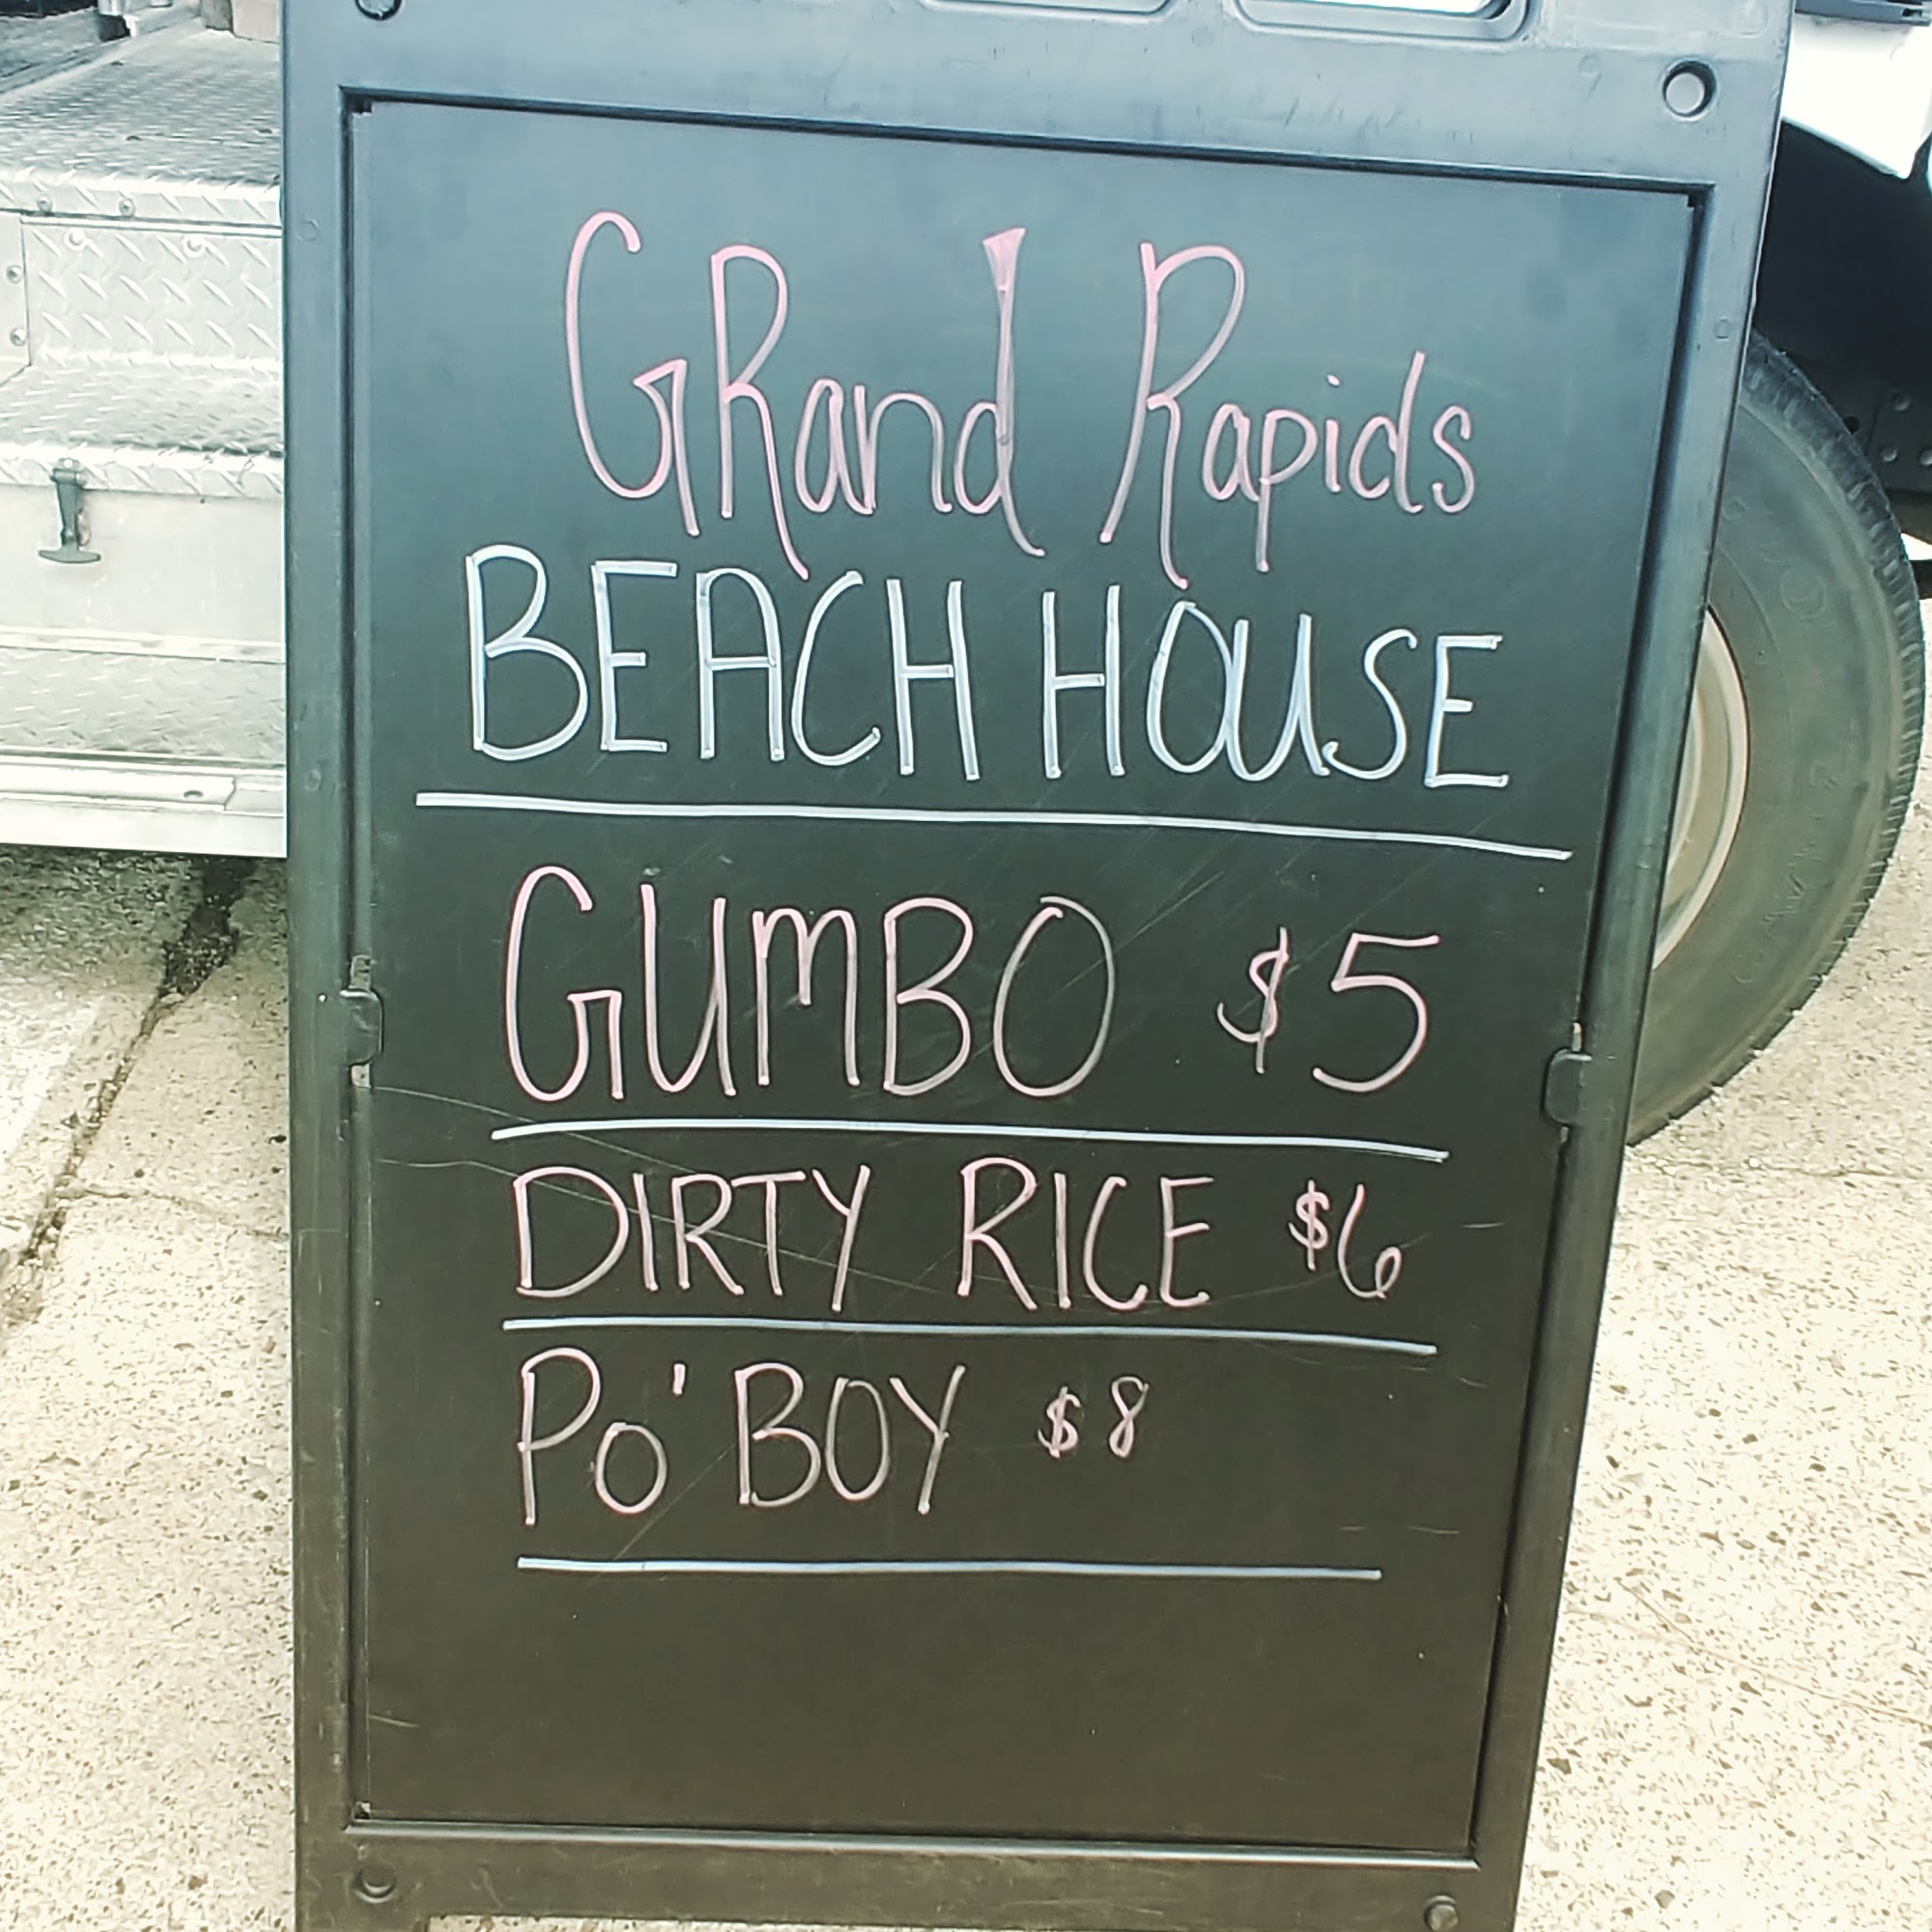 GRand Rapids
BEACH HOUSE
GUMBO $5
DIRTY RICE $6
Po' BOY $8